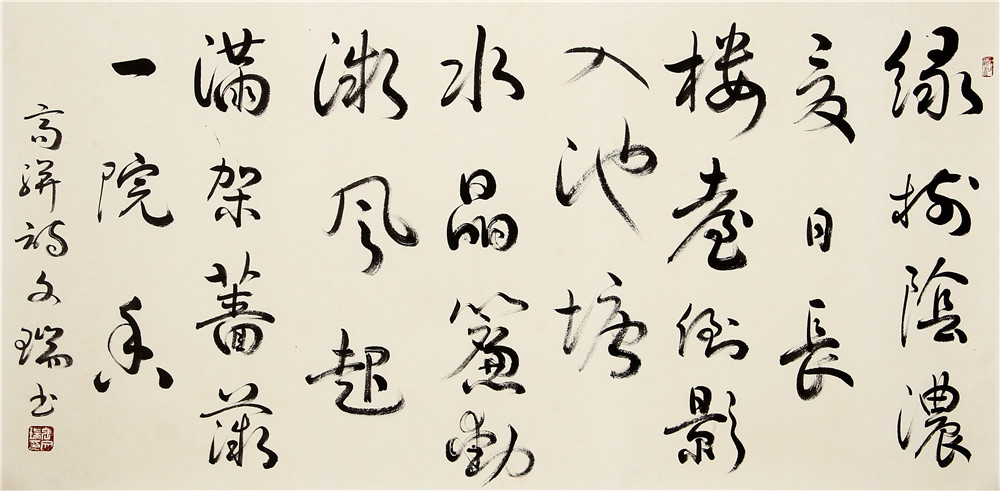 綠樹陰濃
夏日長
樓臺倒影
入池塘
水晶簾動
微風起
滿架薔薇
一院香
高駢詩文瑞書